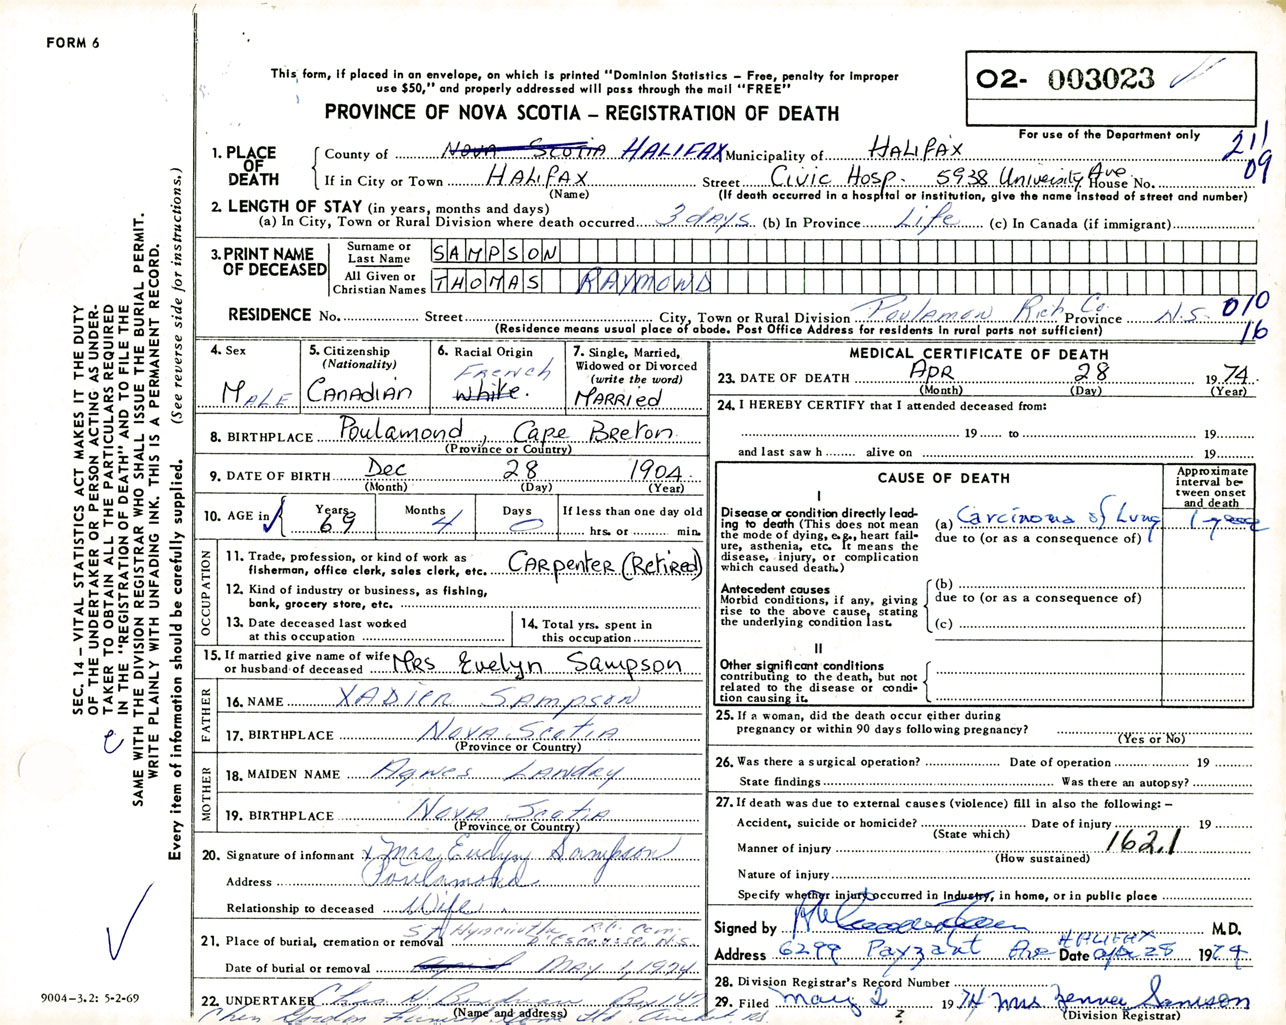 FORM 6
This form, if placed in an envelope, on which is printed "Dominion Statistics – Free, penalty for improper
use $50," and properly addressed will pass through the mail "FREE"
PROVINCE OF NOVA SCOTIA – REGISTRATION OF DEATH
O2- 003023
For use of the Department only
211
09
1. PLACE OF DEATH
County of Nova Scotia HALIFAX Municipality of HALIFAX
If in City or Town HALIFAX Street Civic Hosp. 5938 University Ave House No.
(Name) (If death occurred in a hospital or institution, give the name instead of street and number)
2. LENGTH OF STAY (in years, months and days)
(a) In City, Town or Rural Division where death occurred 3 days (b) In Province Life (c) In Canada (if immigrant)
3. PRINT NAME OF DECEASED
Surname or Last Name SAMPSON
All Given or Christian Names THOMAS RAYMOND
RESIDENCE No. Street City, Town or Rural Division Poulamon Rich Co Province N.S. 010
(Residence means usual place of abode. Post Office Address for residents in rural parts not sufficient) 16
4. Sex
MALE
5. Citizenship
(Nationality)
CANADIAN
6. Racial Origin
FRENCH
White.
7. Single, Married,
Widowed or Divorced
(write the word)
MARRIED
8. BIRTHPLACE Poulamond, Cape Breton
(Province or Country)
9. DATE OF BIRTH Dec 28 1904
(Month) (Day) (Year)
10. AGE in Years 69 Months 4 Days 0 If less than one day old
hrs. or min.
OCCUPATION
11. Trade, profession, or kind of work as
fisherman, office clerk, sales clerk, etc. CARpenter (Retired)
12. Kind of industry or business, as fishing,
bank, grocery store, etc.
13. Date deceased last worked
at this occupation
14. Total yrs. spent in
this occupation
15. If married give name of wife
or husband of deceased MRS Evelyn Sampson
FATHER
16. NAME XADIER SAMPSON
17. BIRTHPLACE NOVA SCOTIA
(Province or Country)
MOTHER
18. MAIDEN NAME Agnes LANDRY
19. BIRTHPLACE NOVA SCOTIA
(Province or Country)
20. Signature of informant x Mrs. Evelyn Sampson
Address Poulamond
Relationship to deceased Wife
21. Place of burial, cremation or removal St Hyacinth R.C. Cem. D'Escousse N.S.
Date of burial or removal April MAY 1, 1974
22. UNDERTAKER Chas H.
(Name and address)
MEDICAL CERTIFICATE OF DEATH
23. DATE OF DEATH APR 28 1974
(Month) (Day) (Year)
24. I HEREBY CERTIFY that I attended deceased from:
19 to 19
and last saw h alive on 19
CAUSE OF DEATH
Approximate
interval be-
tween onset
and death
I
Disease or condition directly lead-
ing to death (This does not mean
the mode of dying, e.g., heart fail-
ure, asthenia, etc. It means the
disease, injury, or complication
which caused death.)
(a) Carcinoma of Lung 1 year
due to (or as a consequence of)
Antecedent causes
Morbid conditions, if any, giving
rise to the above cause, stating
the underlying condition last.
(b)
due to (or as a consequence of)
(c)
II
Other significant conditions
contributing to the death, but not
related to the disease or condi-
tion causing it.
25. If a woman, did the death occur either during
pregnancy or within 90 days following pregnancy?
(Yes or No)
26. Was there a surgical operation? Date of operation 19
State findings Was there an autopsy?
27. If death was due to external causes (violence) fill in also the following: –
Accident, suicide or homicide? Date of injury 19
(State which)
Manner of injury 162.1
(How sustained)
Nature of injury
Specify whether injury occurred in industry, in home, or in public place
Signed by M.D.
Address 6299 Payzant Ave HALIFAX Date Apr 28 1974
28. Division Registrar's Record Number
29. Filed May 2 1974 Mrs Samson
(Division Registrar)
SEC. 14 – VITAL STATISTICS ACT MAKES IT THE DUTY
OF THE UNDERTAKER OR PERSON ACTING AS UNDER-
TAKER TO OBTAIN ALL THE PARTICULARS REQUIRED
IN THE "REGISTRATION OF DEATH" AND TO FILE THE
SAME WITH THE DIVISION REGISTRAR WHO SHALL ISSUE THE BURIAL PERMIT.
WRITE PLAINLY WITH UNFADING INK. THIS IS A PERMANENT RECORD.
Every item of information should be carefully supplied. (See reverse side for instructions.)
9004–3.2: 5-2-69